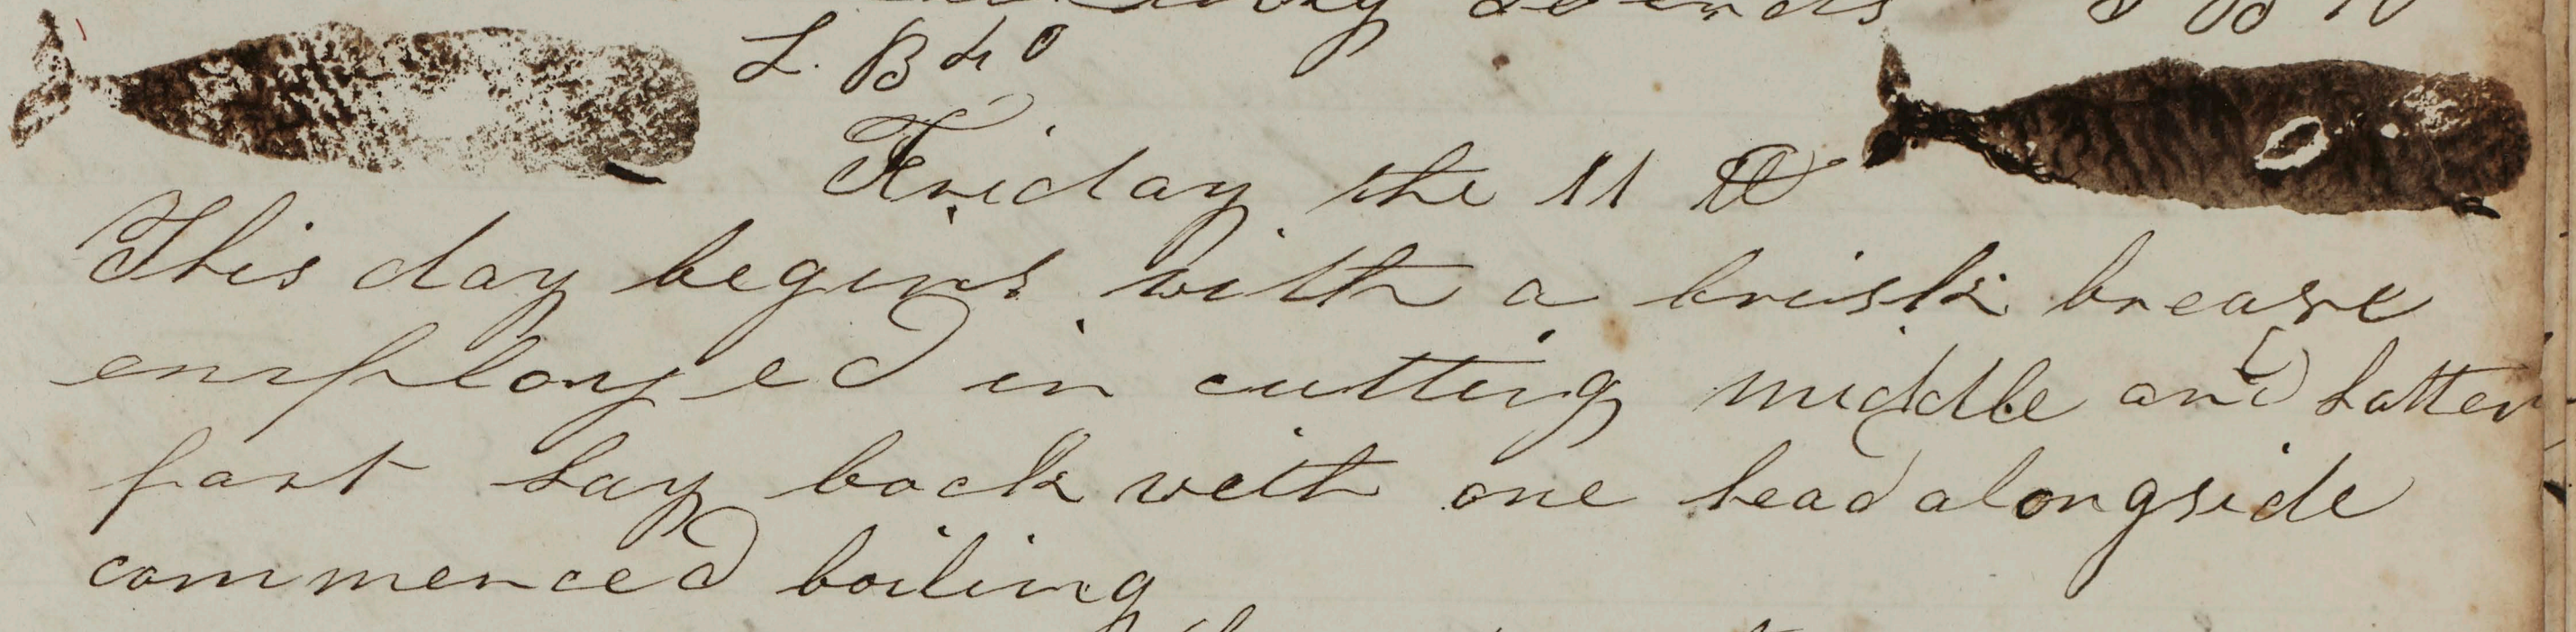 L. B 40
Friday the 11 th
This day begins with a brisk brease
employed in cutting middle and latter
part lay back with one head alongside
commenced boiling